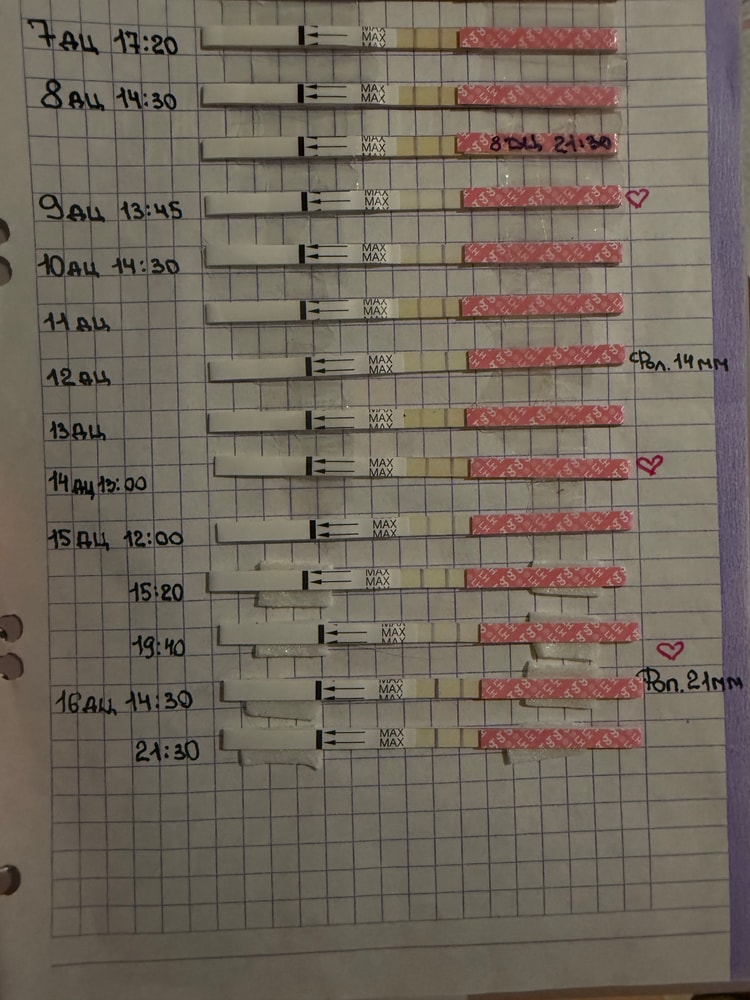 7 ДЦ 17:20
MAX
MAX
8 ДЦ 14:30
MAX
MAX
MAX
MAX
8 ДЦ 21:30
9 ДЦ 13:45
MAX
MAX
10 ДЦ 14:30
MAX
MAX
11 ДЦ
MAX
MAX
12 ДЦ
MAX
MAX
Фол. 14 мм
13 ДЦ
MAX
MAX
14 ДЦ 13:00
MAX
MAX
15 ДЦ 12:00
MAX
MAX
15:20
MAX
MAX
19:40
MAX
MAX
16 ДЦ 14:30
MAX
MAX
Фол. 21 мм
21:30
MAX
MAX